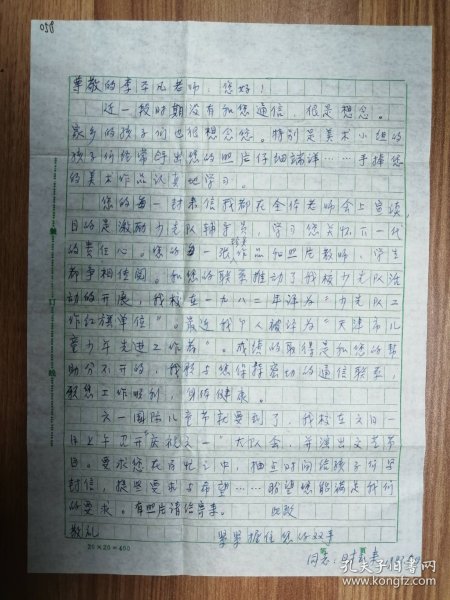 尊敬的李平凡老师 您好!
近一段时期没有和您通信,很是想念。
家乡的孩子们也很想念您。特别是美术小组的
孩子们经常拿出您的照片仔细端详……手捧您
的美术作品认真地学习。
您的每一封来信我都在全体老师会上宣读,
目的是激励少先队辅导员,学习您关怀下一代
的责任心。您的每一张作品和照片教师,学生
都争相传阅。和您的联系推动了我校少先队活
动的开展,我校在一九八二年评为"少先队工
作红旗单位"。最近我个人被评为"天津市儿
童少年先进工作者"。成绩的取得是和您的帮
助分不开的,我愿与您保持密切的通信联系,
祝您工作顺利,身体健康。
六一国际儿童节就要到了,我校在六月一
日上午召开庆祝"六一"大队会,并演出文艺节
目。要求您在百忙之中,抽点时间给孩子们写
封信,提些要求与希望……盼望您能满足我们
的要求。有照片请给寄来。 此致
敬礼 紧紧握住您的双手
20×20=400
孔夫子旧书网